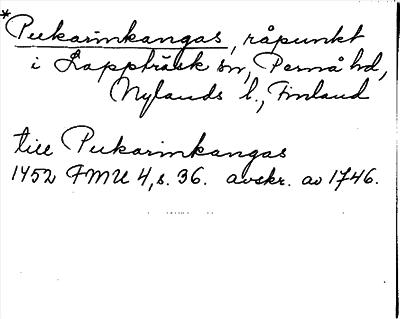 *Pukarinkangas, råpunkt
i Lappträsk sn, Pernå hd,
Nylands l., Finland
till Pukarinkangas
1452 FMU 4, s. 36. avskr. av 1746.